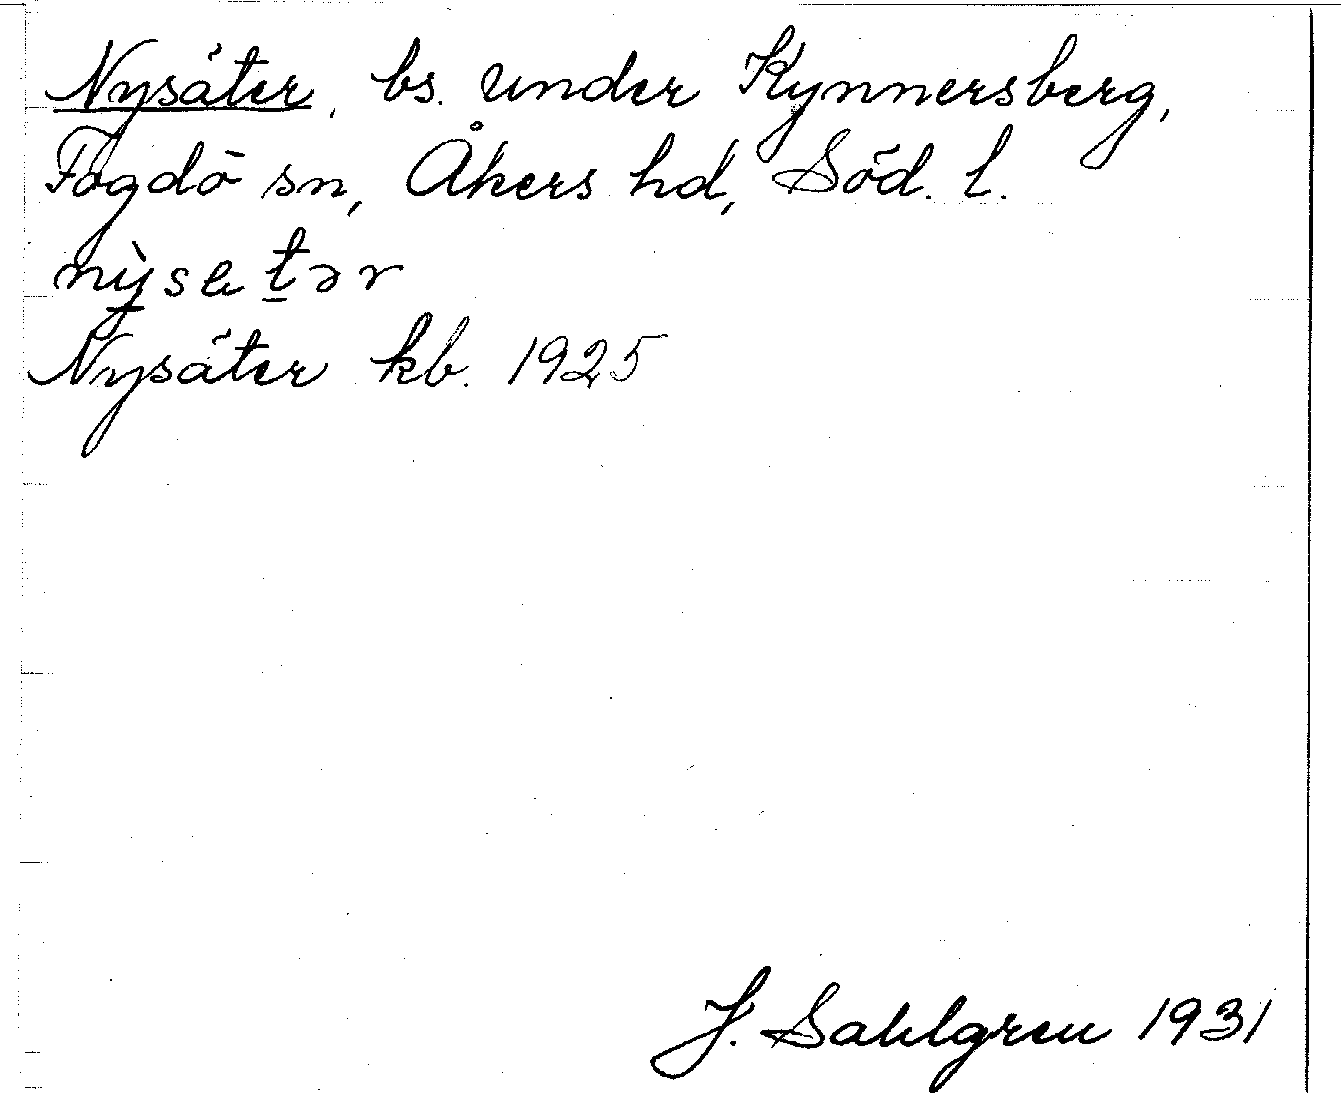 Nysäter, bs. under Kynnersberg,
Fogdö sn, Åkers hd, Söd. l.
Nysäter kb. 1925
J. Sahlgren 1931